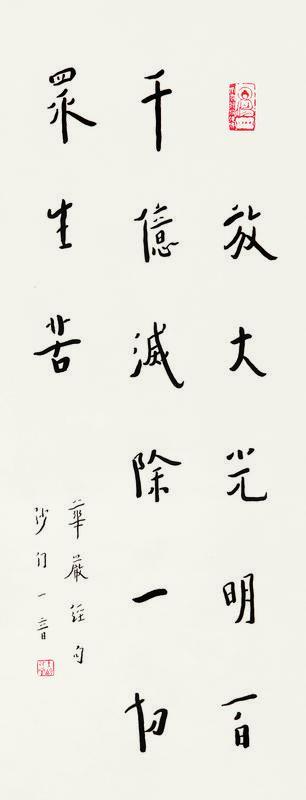 放大光明百
千億滅除一切
眾生苦
華嚴經句
沙門一音